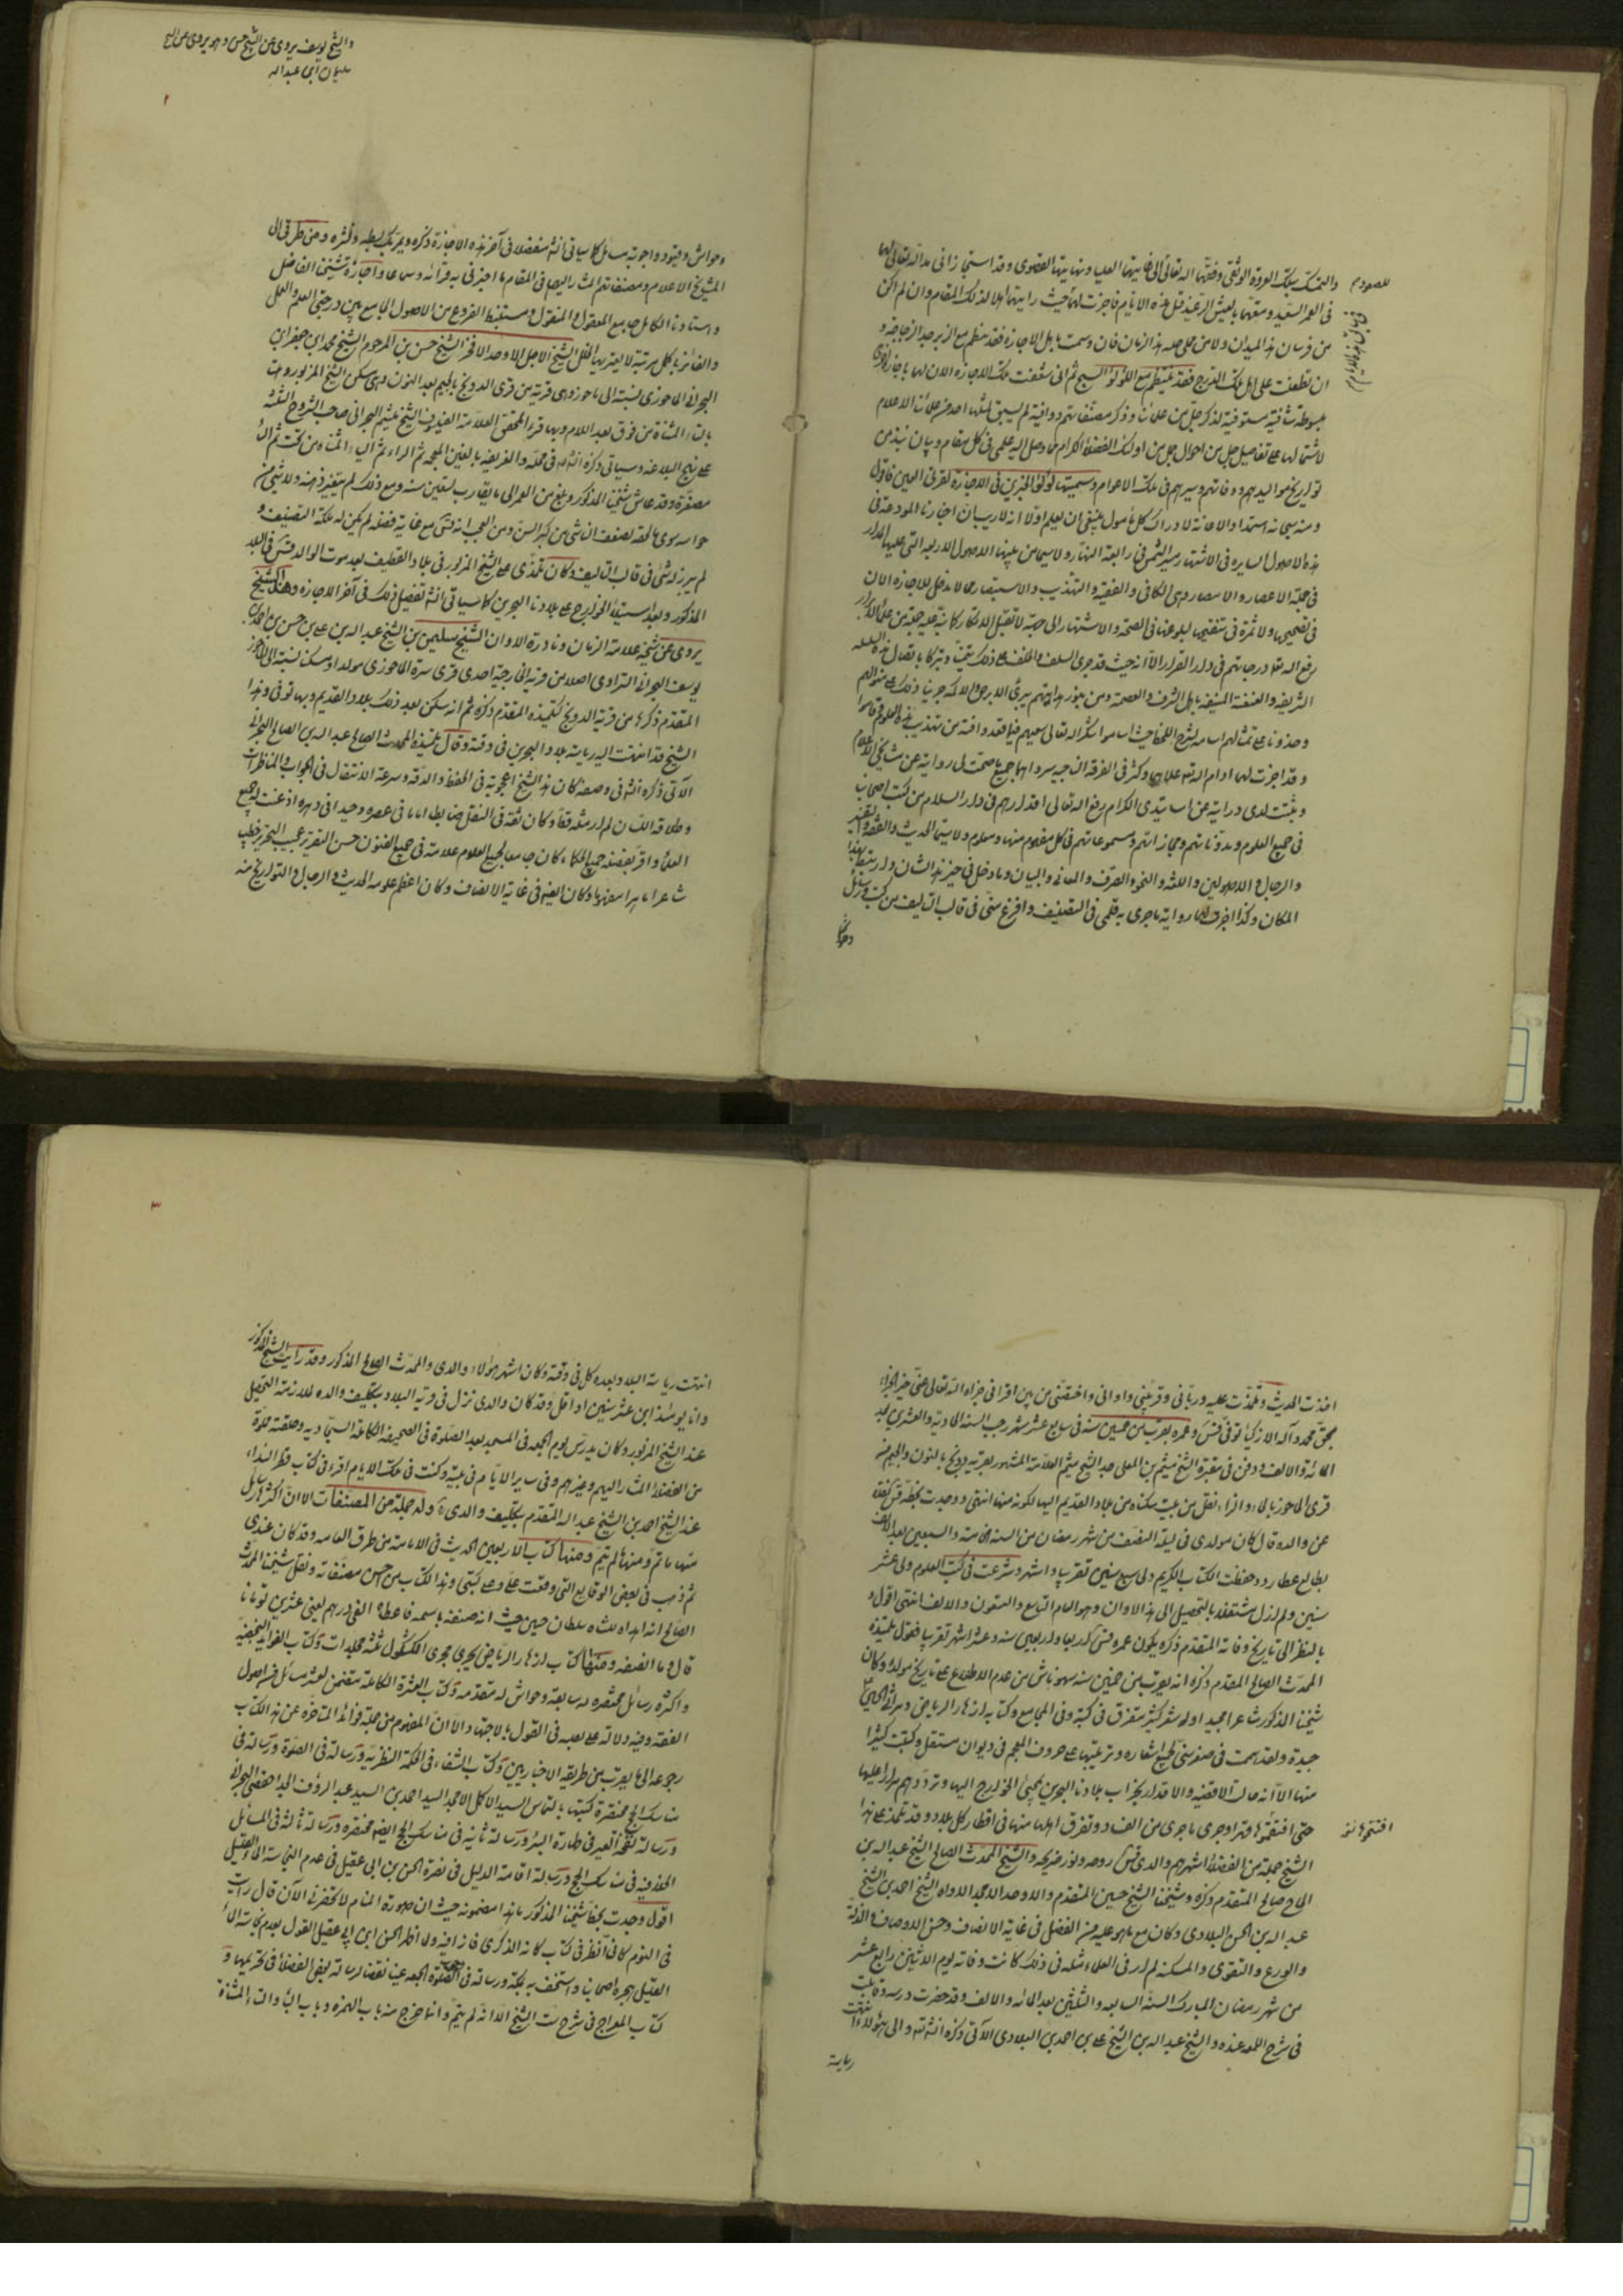 والتمسك بتلك العروة الوثقى وفقهما الله تعالى الى غايتها العليا ونهايتها القصوى وقد استجازاني مد الله تعالى لهما
في العمر السعيد ومتعهما بالعيش الرغيد قبل هذه الايام فاجزت لهما حيث رايتهما اهلا لذلك المقام وان لم اكن
من فرسان هذا الميدان ولا من مجلي حلبة هذا الزمان فان وسمت باهل الاجازة فقد ينظم مع الزبرجد الزجاجة و
ان تطفلت على اهل تلك الدرج فقد ينتظم مع اللؤلؤ السبج ثم اني شفعت تلك الاجازة الان لهما باجازة اخرى
مبسوطة شافية مستوفية لذكر جل من علمائنا وذكر مصنفاتهم ووافية لم يسبق لمثلها احد من علمائنا الاعلام
لاشتمالها على تفاصيل جل من احوال جل من اولئك الفضلاء الكرام مما وصل اليه علمي في كل مقام وبيان نبذ من
تواريخ مواليدهم ووفاتهم وسيرهم في تلك الاعوام وسميتها لؤلؤة البحرين في الاجازة لقرتي العين فاقول
ومنه سبحانه استمد الاعانة لادراك كل مامول ينبغي ان يعلم اولا انه لا ريب ان اخبارنا المودعة في
هذه الاصول السايرة في الاشتهار سير الشمس في رابعة النهار ولا سيما من بينها الاصول الاربعة التي عليها المدار
في جملة الاعصار والامصار وهي الكافي والفقيه والتهذيب والاستبصار مما لا مدخل للاجازة الان
في تصحيحها ولا ثمرة في تنقيحها لبلوغها في الصحة والاشتهار الى حد لا تقبل الانكار كما نبه عليه جملة من علمائنا الابرار
رفع الله تعالى درجاتهم في دار القرار الا انه حيث قد جرى السلف والخلف على ذلك تيمنا وتبركا باتصال هذه السلسلة
الشريفة والعنعنة المنيفة باهل الشرف والعصمة ومن بنور هدايتهم يبرئ الابرص والاكمه جرينا ذلك على منوالهم
وحذونا على تمثالهم
وقد اجزت لهما ادام الله تعالى علاهما وكثر في الفرقة الناجية سرواهما جميع ما صحت لي روايته عن مشايخي الاعلام
وثبتت لدي درايته عن اساتيدي الكرام رفع الله تعالى اقدارهم في دار السلام من كتب اصحابنا
في جميع العلوم ومدوناتهم ومجازاتهم ومسموعاتهم في كل مفهوم منها ومعلوم ولا سيما الحديث والفقه والتفسير
والرجال والاصولين واللغة والنحو والصرف والمعاني والبيان وما دخل في حيز هذا الشان وارتبط بهذا
المكان وكذا اجزت لهما رواية ما جرى به قلمي في التصنيف وافرغ مني في قالب التاليف من كتب ورسائل
وحواش
والشيخ يوسف يروي عن الشيخ حسين وهو يروي عن الشيخ
سليمان ابن عبد الله
٢
وحواش وقيود واجوبة مسائل كما سياتي انشاء مفصلا في آخر هذه الاجازة ذكره ويمر بك بسطه ونشره ومن طرقي الى
المشايخ الاعلام ومصنفاتهم المشار اليها في المقام ما اخبرني به قراءة وسماعا واجازة شيخنا الفاضل
واستادنا الكامل جامع المعقول والمنقول ومستنبط الفروع من الاصول الجامع بين درجتي العلم والعمل
والفائز باكمل مرتبة لا يعتريها الخلل الشيخ الاجل الاوحد الافخر الشيخ حسين بن المرحوم الشيخ محمد ابن جعفر ابن
البحراني الماحوزي نسبته الى ماحوز وهي قرية من قرى الدونج بالجيم بعد النون وهي مسكن الشيخ المزبور وهلتا
بالتاء المثناة من فوق بعد اللام وبها قبر المحقق العلامة الفيلسوف الشيخ ميثم البحراني صاحب الشروح الثلثة
على نهج البلاغة وسياتي ذكره انشاء الله في محله والغريفة بالغين المعجمة ثم الراء ثم الياء المثناة من تحت ثم الفاء
مصغرة وقد عاش شيخنا المذكور وبلغ من العمر الى ما يقارب تسعين سنة ومع ذلك لم يتغير ذهنه ولا شيء من
حواسه سوى ما لحقه لضعف الناشي من كبر السن ومن العجب انه قدس مع غاية فضله لم يكن له ملكة التصنيف و
لم يبرز له شئ في قالب التاليف وكان تلمذي على الشيخ المزبور في بلاد القطيف بعد موت الوالد قدس في البلد
المذكور وبعد استيلاء الخوارج على بلادنا البحرين كما سياتي انشاء تفصيل ذلك في آخر الاجازة وهذا الشيخ
يروي عن شيخه علامة الزمان ونادرة الاوان الشيخ سليمان بن الشيخ عبد الله بن علي بن حسن بن احمد بن
يوسف البحراني الستراوي اصلا من قرية الخارجية احدى قرى سترة الماحوزي مولدا ومسكنا نسبة الى الماحوز
المتقدم ذكرها من قرية الدونج كتلميذه المقدم ذكره ثم انه سكن بعد ذلك بلاد القديم وبها توفي وهذا
الشيخ قد انتهت اليه رياسة بلاد البحرين في وقته وقال تلميذه المحدث الصالح عبد الله بن صالح البحراني
الآتي ذكره انشاء في وصفه كان هذا الشيخ اعجوبة في الحفظ والدقة وسرعة الانتقال في الجواب والمناظرات
وطلاقة اللسان لم ار مثله قط وكان ثقة في النقل ضابطا اماما في عصره وحيدا في دهره اذعنت له جميع
العلماء واقر بفضله جميع الحكماء وكان جامعا لجميع العلوم علامة في جميع الفنون حسن التقرير عجيب التحرير خطيبا
شاعرا ماهرا مفوها وكان ايضا في غاية الانصاف وكان اعظم علومه الحديث والرجال والتواريخ منه
اخذت الحديث وتلمذت عليه ورباني وقربني وآواني واختصني من بين اقراني جزاه الله تعالى عني خير الجزاء
بحق محمد وآله الازكياء توفي قدس وعمره يقرب من خمسين سنة في سابع عشر شهر رجب السنة الحادية والعشرين بعد
المائة والالف ودفن في مقبرة الشيخ ميثم بن المعلى جد الشيخ ميثم العلامة المشهور بقرية دونج بالنون والجيم من
قرى الماحوز بالحاء والزاء نقل من بيت سكناه من بلاد القديم اليها لكونه منها انتهى ووجدت بخطه قدس نقلا
عن والده قال كان مولدي في ليلة النصف من شهر رمضان من السنة الخامسة والسبعين بعد الالف
بطالع عطارد وحفظت الكتاب الكريم ولي سبع سنين تقريبا واشهر وشرعت في كسب العلوم ولي عشر
سنين ولم ازل مشتغلا بالتحصيل الى هذا الاوان وهو العام التاسع والتسعون والالف انتهى اقول و
بالنظر الى تاريخ وفاته المتقدم ذكره يكون عمره قدس اربعا واربعين سنة وعشر اشهر تقريبا فقول تلميذه
المحدث الصالح المتقدم ذكره انه يقرب من خمسين سنة سهو ناش من عدم الاطلاع على تاريخ مولده وكان
شيخنا المذكور شاعرا مجيدا وله شعر كثير متفرق في كتبه وفي المجاميع وكتابه ازهار الرياض ومراثي الحسين
جيدة ولقد هممت في صغر سني لجمع اشعاره وترتيبها على حروف المعجم في ديوان مستقل وكتبت كثيرا
منها الا انه حالت الاقضية والاقدار بخراب بلادنا البحرين بمجئ الخوارج اليها وترددهم مرارا عليها
حتى افتتحوها قهرا وجرى ما جرى من الفساد وتفرق اهلها منها في اقطار كل بلاد وقد تلمذ على هذا
الشيخ جملة من الفضلاء اشهرهم والدي قدس روحه ونور ضريحه والشيخ المحدث الصالح الشيخ عبد الله بن
الحاج صالح المتقدم ذكره وشيخنا الشيخ حسين المتقدم والاوحد الامجد الاواه الشيخ احمد بن الشيخ
عبد الله بن الحسن البلادي وكان مع ما هو عليه من الفضل في غاية الانصاف وحسن الاوصاف والذلة
والورع والتقوى والمسكنة لم ار في العلماء مثله في ذلك كانت وفاته يوم الاثنين رابع عشر
من شهر رمضان المبارك السنة السابعة والثلثين بعد المائة والالف وقد حضرت درسه
في شرح اللمعة عنده والشيخ عبد الله بن الشيخ علي بن احمد البلادي الآتي ذكره انشاء الله والى هؤلاء انتهت
رياسة
٣
انتهت رياسة البلاد بعده كل في وقته وكان اشهر هؤلاء والدي والمحدث الصالح المذكور وقد رايت الشيخ المذكور
وانا يومئذ ابن عشر سنين او اقل وقد كان والدي نزل في قرية البلاد بتكليف والده لملازمة التحصيل
عند الشيخ المزبور وكان يدرس يوم الجمعة في المسجد بعد الصلوة في الصحيفة الكاملة السجادية وحلقته مملوة
من الفضلاء المشار اليهم وغيرهم وفي ساير الايام في بيته وكنت في تلك الايام اقرا في كتاب قطر النداء
عند الشيخ احمد بن الشيخ عبد الله المتقدم بتكليف والدي وله جملة من المصنفات الا ان اكثرها رسائل
منها ما تم ومنها لم يتم ومنها كتاب الاربعين الحديث في الامامة من طرق العامة وقد كان عندي
ثم ذهب في بعض الوقايع التي وقعت علي وعلى كتبي وهذا الكتاب من احسن مصنفاته ونقل شيخنا المحدث
الصالح انه اهداه للشاه سلطان حسين حيث انه صنفه باسمه فاعطاه الفي درهم يعني عشرين تومانا
قال وما انصفه ومنها كتاب ازهار الرياض يجري مجرى الكشكول ثلثة مجلدات وكتاب الفوائد النجفية
واكثره رسائل مختصرة له سابقة وحواش له متقدمة وكتاب العشرة الكاملة متضمن لعشر مسائل من اصول
الفقه وفيه دلالة على تصلبه في القول بالاجتهاد الا ان المفهوم من جملة فوائد المتاخرة عن هذا الكتاب
رجوعه الى ما يقرب من طريقة الاخباريين وكتاب الشفاء في الحكمة النظرية ورسالة في الصلوة ورسالة في
مناسك الحج مختصرة كتبتها بالتماس السيد الاكمل الامجد السيد احمد بن السيد عبد الرؤف الجد احفصي البحراني
ورسالة نفحة العبير في طهارة البئر ورسالة ثانية في مناسك الحج ايضا مختصرة ورسالة ثالثة في المسائل
الخلافية في مناسك الحج ورسالة اقامة الدليل في نصرة الحسن بن ابي عقيل في عدم النجاسة الماء القليل
اقول وجدت بخط شيخنا المذكور ما هذا مضمونه حيث ان صورة المنام لا تحضرني الآن قال رايت
في النوم كاني انظر في كتاب كانه الذكرى فاذا فيه
القليل
كتاب المعراج في شرح فهرست الشيخ الا انه لم يتم وانما خرج منه باب الهمزة وباب الباء والتاء المثناة